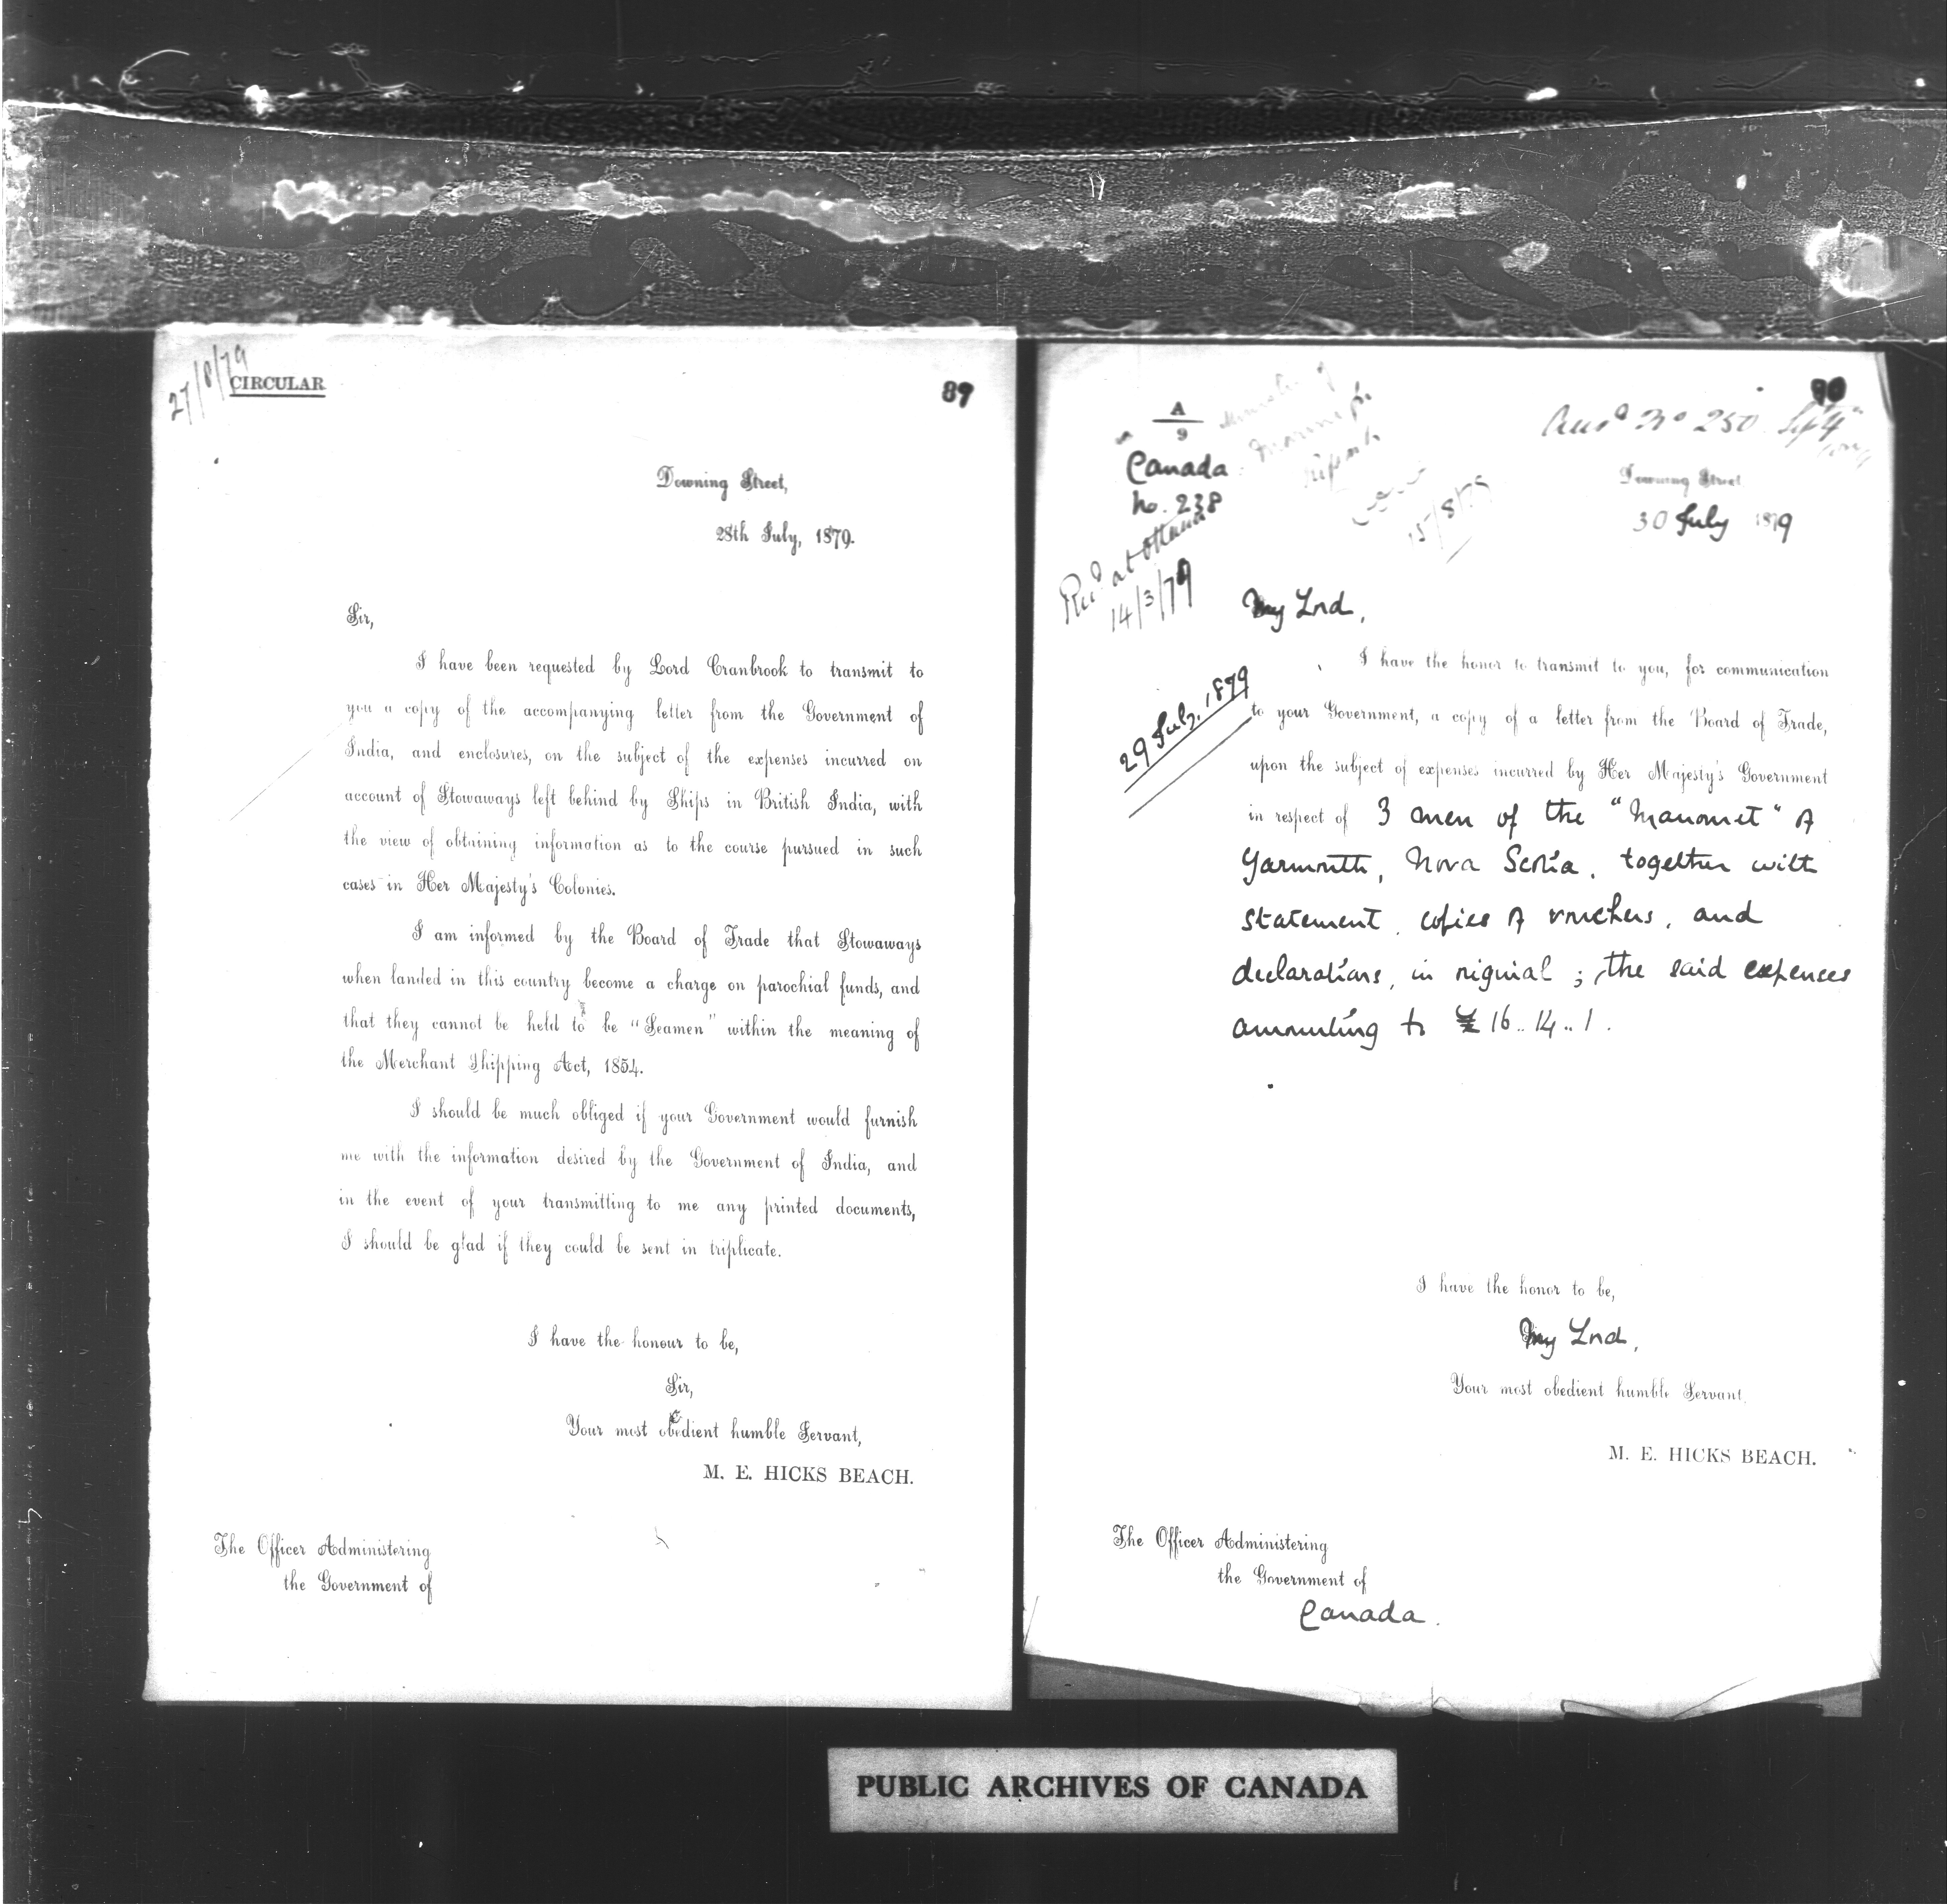 27/8/79
CIRCULAR
89
Downing Street,
28th July, 1879.
Sir,
I have been requested by Lord Cranbrook to transmit to
you a copy of the accompanying letter from the Government of
India, and enclosures, on the subject of the expenses incurred on
account of Stowaways left behind by Ships in British India, with
the view of obtaining information as to the course pursued in such
cases in Her Majesty's Colonies.
I am informed by the Board of Trade that Stowaways
when landed in this country become a charge on parochial funds, and
that they cannot be held to be "Seamen" within the meaning of
the Merchant Shipping Act, 1854.
I should be much obliged if your Government would furnish
me with the information desired by the Government of India, and
in the event of your transmitting to me any printed documents,
I should be glad if they could be sent in triplicate.
I have the honour to be,
Sir,
Your most obedient humble Servant,
M. E. HICKS BEACH.
The Officer Administering
the Government of
90
A
9
Canada
No. 238
Recd at Ottawa
14/3/79
15/8/79
Ansd No 250 Sept 4
Downing Street
30 July 1879
My Lord,
29 July, 1879
I have the honor to transmit to you, for communication
to your Government, a copy of a letter from the Board of Trade,
upon the subject of expenses incurred by Her Majesty's Government
in respect of 3 men of the "Manomet" of
Yarmouth, Nova Scotia, together with
statement, copies of vouchers, and
declarations, in original; the said expenses
amounting to £16..14..1.
I have the honor to be,
My Lord,
Your most obedient humble Servant
M. E. HICKS BEACH.
The Officer Administering
the Government of
Canada.
PUBLIC ARCHIVES OF CANADA